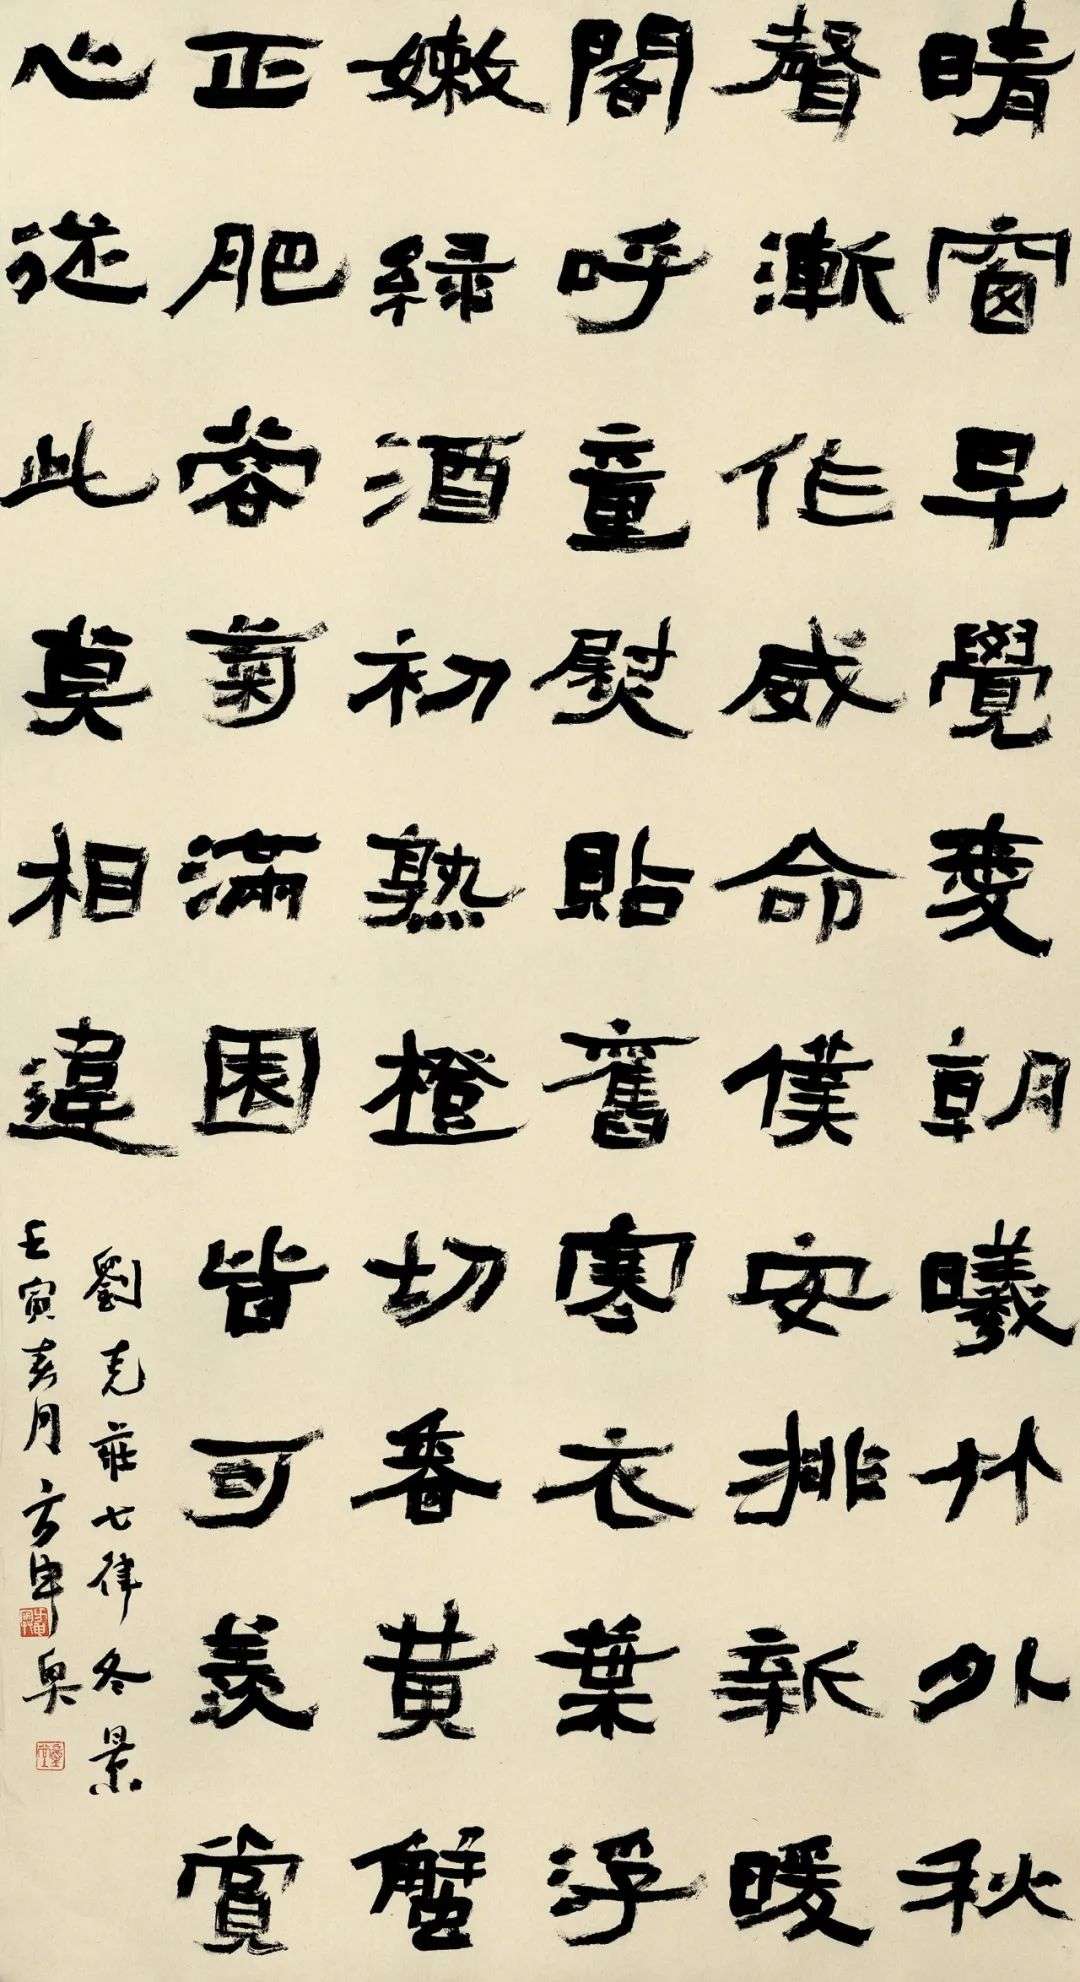 晴窗早覺愛朝曦竹外秋
聲漸作威命僕安排新暖
閣呼童熨貼舊寒衣葉浮
嫩綠酒初熟橙切香黃蟹
正肥蓉菊滿園皆可羨賞
心從此莫相違
劉克莊七律冬景
壬寅春月方申